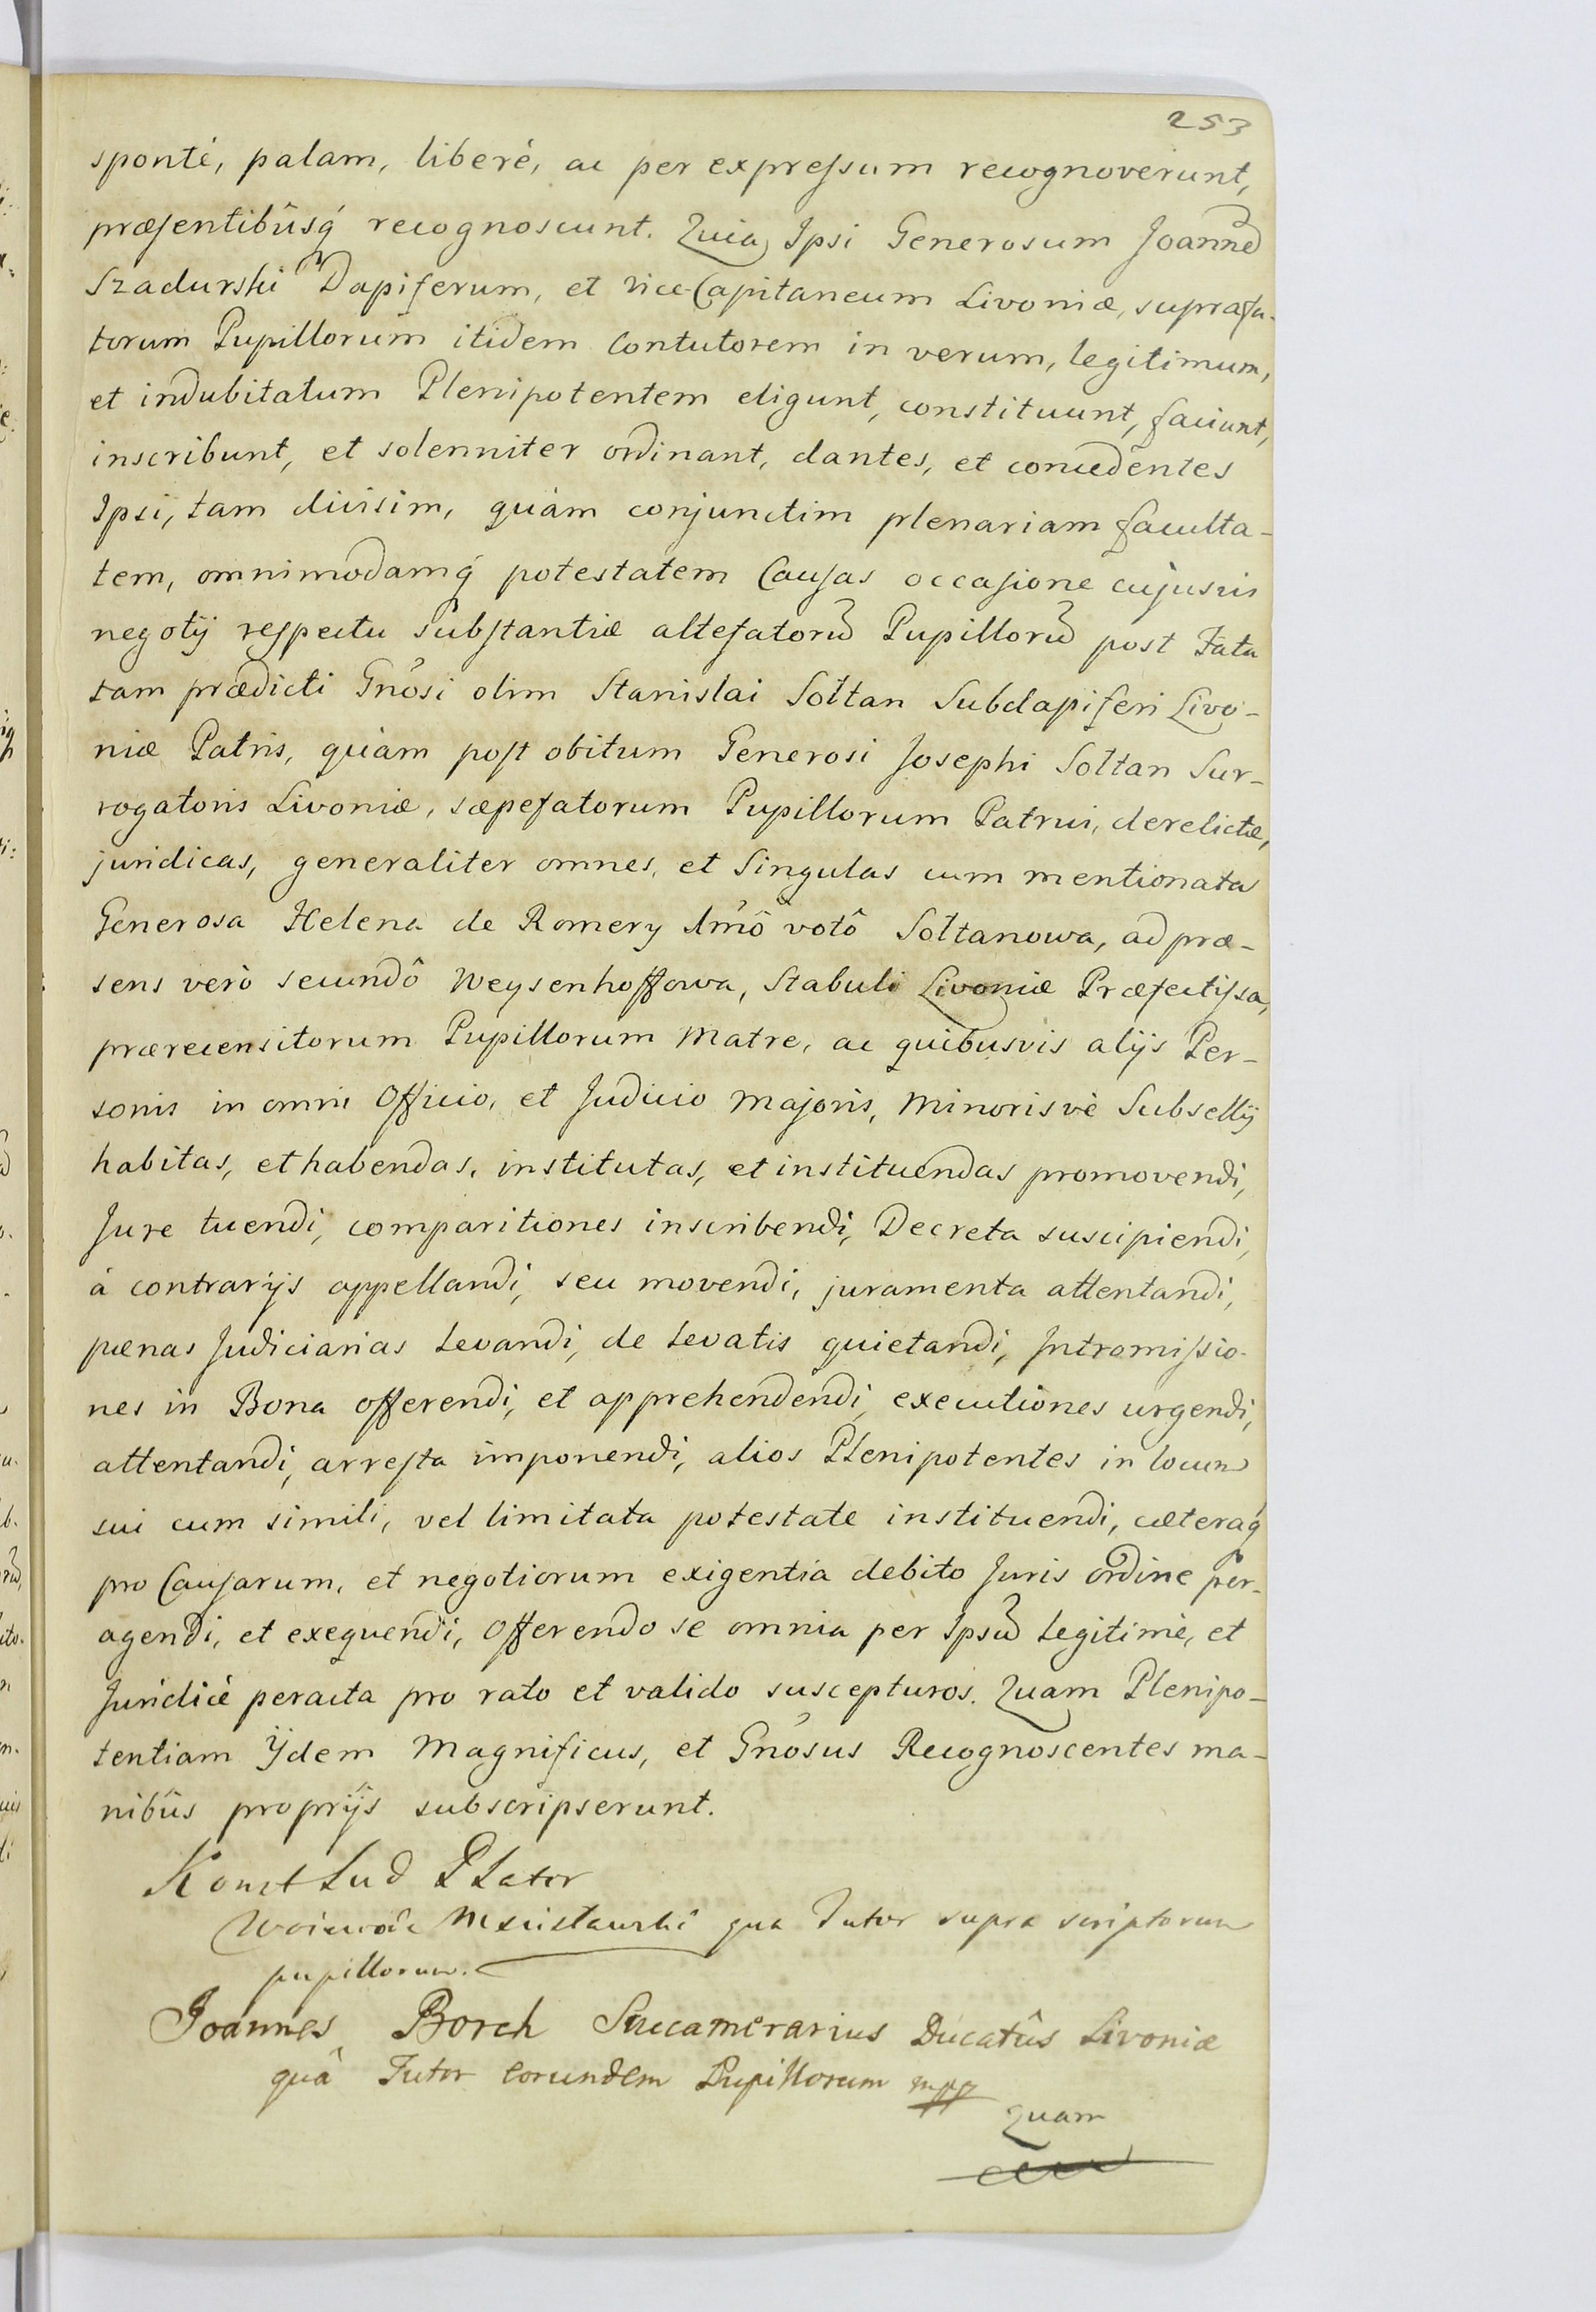 253
spontè, palam, liberè, ac per expressum recognoverunt,
præsentibûsq́ recognoscunt. Quia Ipsi Generosum Joannẽ
Szadurski Dapiferum, et Vice-Capitaneum Livoniæ, suprafa-
torum Pupillorum itidem Contutorem in verum, legitimum,
et indubitatum Plenipotentem eligunt, constituunt, faciunt,
inscribunt, et solenniter ordinant, dantes, et concedentes
Ipsi, tam divisim, quàm conjunctim plenariam faculta-
tem, omnimodamq́ potestatem Causas occasione cujusvis
negotij respectu Substantiæ altefatorũ Pupillorũ post Fata
tam prædicti Gnősi olim Stanislai Sołtan Subdapiferi Livo-
niæ Patris, quàm post obitum Generosi Josephi Sołtan Sur-
rogatoris Livoniæ, sæpefatorum Pupillorum Patrui, derelictæ,
juridicas, generaliter omnes, et Singulas cum mentionata
Generosa Helena de Romery 1mô votô Sołtanowa, ad præ-
sens verò secundô Weysenhoffowa, Stabuli Livoniæ Præfectissa,
prærecensitorum Pupillorum Matre, ac quibusvis alijs Per-
sonis in omni Officio, et Judicio Majoris, Minorisvè Subsellij
habitas, et habendas, institutas, et instituendas promovendi,
Jure tuendi, comparitiones inscribendi, Decreta suscipiendi,
à contrarijs appellandi, seu movendi, juramenta attentandi,
pœnas Judiciarias levandi, de levatis quietandi, Intromissio-
nes in Bona offerendi, et apprehendendi, executiones urgendi,
attentandi, arresta imponendi, alios Plenipotentes in locum
sui cum simili, vel limitata potestate instituendi, cæteraq́
pro Causarum, et negotiorum exigentia debito Juris ordine per-
agendi, et exequendi, Offerendo se omnia per Ipsũ legitimè, et
Juridicè peracta pro rato et valido suscepturos. Quam Plenipo-
tentiam Ijdem Magnificus, et Gnősus Recognoscentes ma-
nibûs proprijs subscripserunt.
Konst Lud Plater
Woiewoda Mscisławski qua Tutor supra scriptorum
pupillorum.
Joannes Borch Succamerarius Ducatûs Livoniæ
quâ Tutor eorundem Pupillorum mpp
Quam